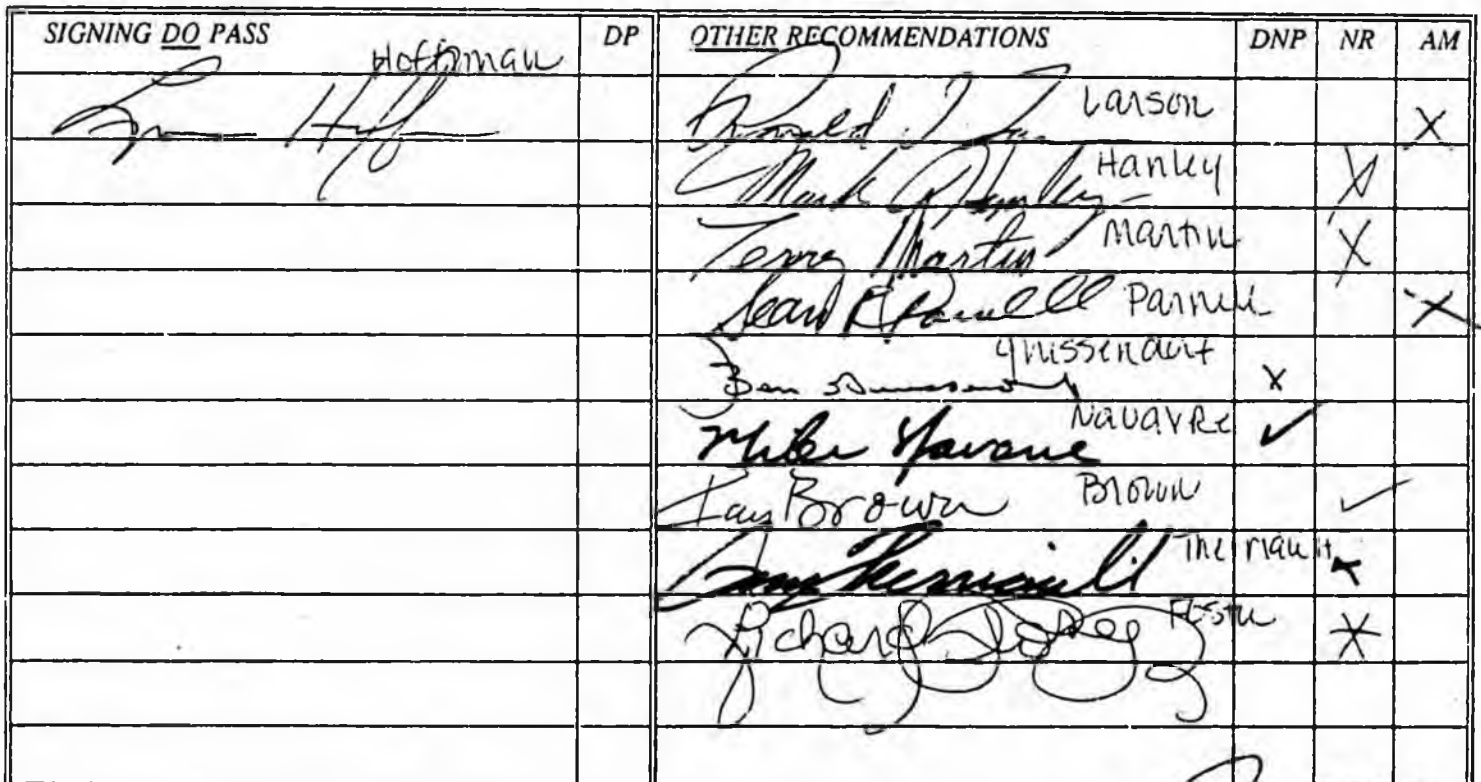 SIGNING DO PASS DP OTHER RECOMMENDATIONS DNP NR AM
Hoffman
Larson X
Mark Hanley Hanley X
Terry Martin Martin X
Sean R Parnell Parnell X
Ben X
Mike Navarre Navarre ✓
Kay Brown Brown ✓
Therriault x
Richard Foster Foster X